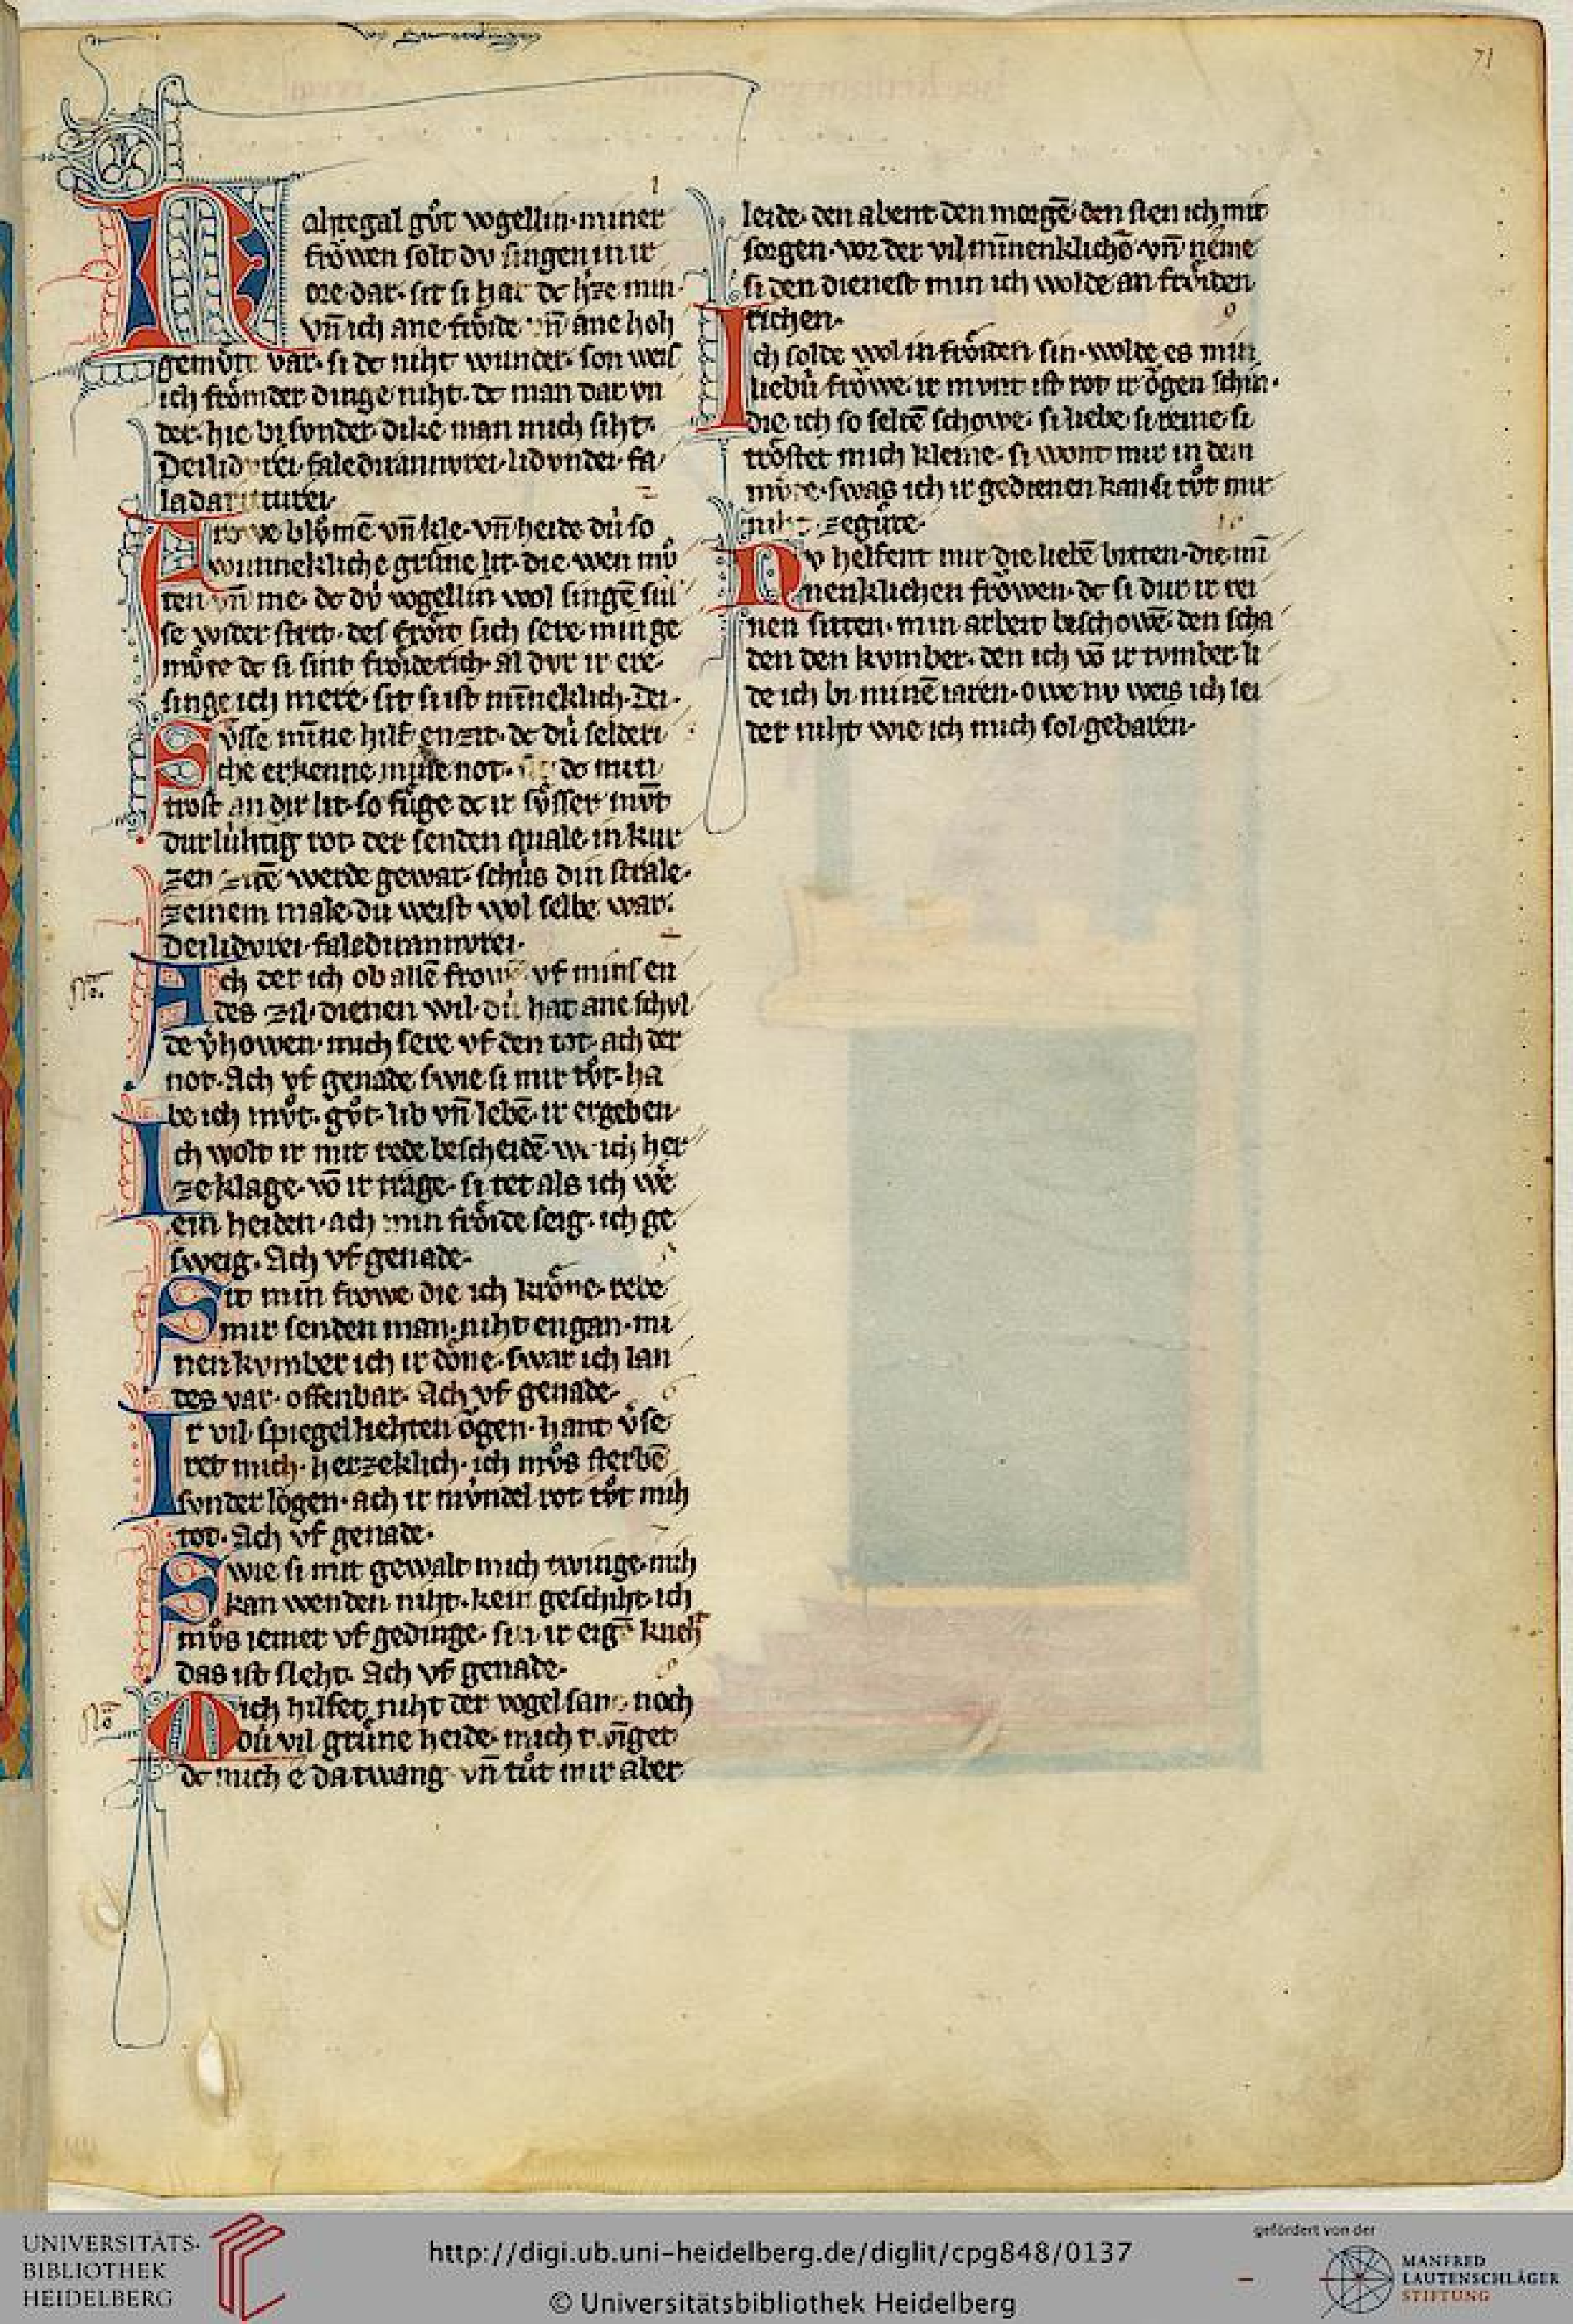 71
1
Nahtegal gůt vogellin miner
frowen solt dv singen in ir
ore dar· sit si hat dc h̾ze min·
vñ ich ane froͤide vñ ane hoh
gemuͤte var· si dc niht wunder· son weis
ich froͤmder dinge niht· dc man dar vn
der· hie bisonder dike man mich siht·
Deilidvrei faledirannvrei· lidvndei· fa
ladaritturei·
2
Frowe blůmē vñ kle· vñ heide dú so
wunnekliche gruͤne lit· die wen muͤ
ten vñ me· dc dú vogellin wol singē suͤs
se wider strit· des froͤit sich sere· min ge
muͤte dc si sint froͤiderich· al dvr ir ere·
singe ich mere· sit si ist miñeklich· Dei·
Suͤsse miñe hilf enzit· dc dú selderi
che erkenne mine not· dc min
trost an dir lit· so fuͤge dc ir suͤsser mvͦt
durlúhtig rot· der senden quale· in kur
zen zitē werde gewar· schús din strale·
zeinem male· du weist wol selbe war·
Deilidvrei· faledirannvrei·
No.
Ach der ich ob allē frowē vf mins en
des zil· dienen wil· dú hat ane schvl
de v̾howen· mich sere vf den tot· ach der
not· Ach vf genade swie si mir tůt· ha
be ich mvͦt· gvͦt· lib vñ lebē· ir ergeben·
Ich wolt ir mit rede bescheidē· wc ich her
zeklage· vō ir trage· si tet als ich we̾
ein heiden· ach min froͤide seig· ich ge
sweig· Ach vf genade·
5
Sit min frowe die ich kroͤne· rede
mir senden man· niht engan· mi
nen kvmber ich ir doͤne· swar ich lan
des var· offenbar· Ach vf genade·
6
Ir vil spiegelliehten oͤgen· hant v̾se
ret mich· herzeklich· ich mvͦs sterbē
svnder loͤgen· ach ir mv́ndel rot· tůt mih
tot· Ach vf genade·
7
Swie si mit gewalt mich twinge· mih
kan wenden niht· kein geschiht· ich
mvͦs iemer vf gedinge· sin ir eigē kneht
das ist sleht· Ach vf genade·
8
No
Mich hilfet niht der vogel sang noch
dú vil gruͤne heide· mich twīget
dc mich e da twang vñ tůt mir aber
leide· den abent den morgē· den sten ich mit
sorgen· vor der vil miñenklichē· vñ neme
si den dienest min ich wolde an froͤiden
richen·
9
Ich solde wol in froͤiden sin· wolde es min
liebú frowe· ir mvnt ist rot ir oͤgen schin·
die ich so seltē schowe· si liebe si reine· si
troͤstet mich kleine· si wont mir in dem
mvͦte· swas ich ir gedienen kan si tůt mir
niht zegůte·
10
Nv helfent mir die liebē bitten· die mī
nenklichen frowen· dc si dur ir rei
nen sitten· min arbeit beschowē· den scha
den den kvmber· den ich vō ir tvmber· li
de ich bi minē iaren· owe nv weis ich lei
der niht wie ich mich sol gebaren·
UNIVERSITÄTS-
BIBLIOTHEK
HEIDELBERG
http://digi.ub.uni-heidelberg.de/diglit/cpg848/0137
© Universitätsbibliothek Heidelberg
gefördert von der
MANFRED
LAUTENSCHLÄGER
STIFTUNG